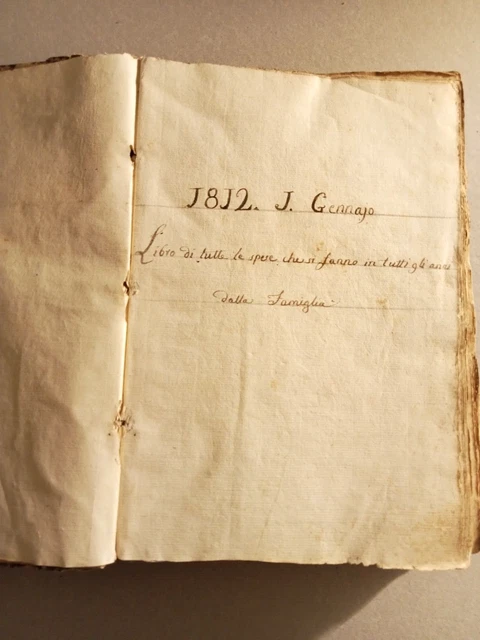 1812. 1. Gennajo
Libro di tutte le spese che si fanno in tutti gli anni
dalla Famiglia